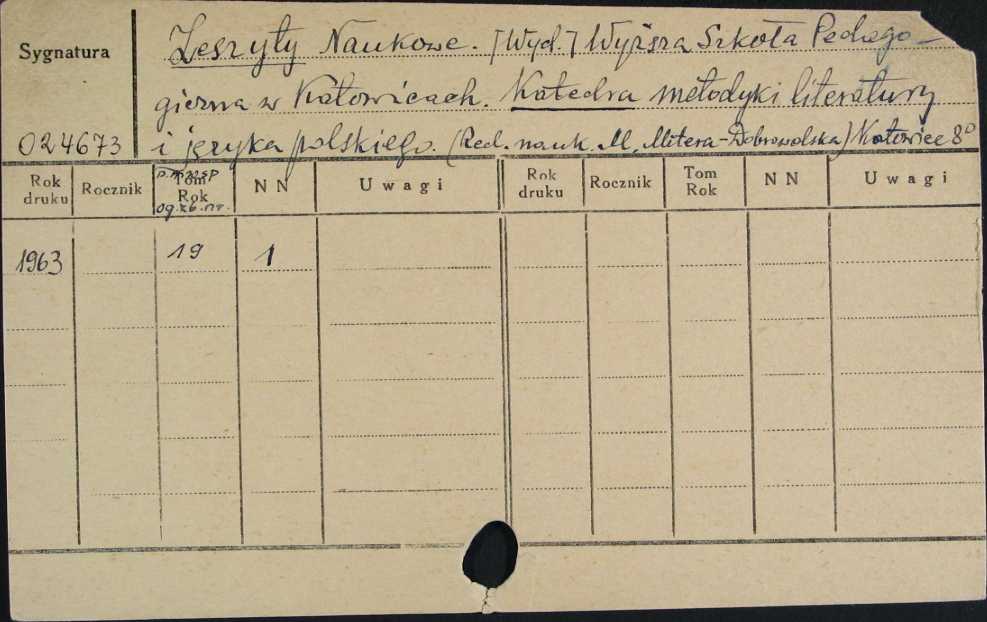 Sygnatura
Zeszyty Naukowe. [Wyd.] Wyższa Szkoła Pedago-
giczna w Katowicach. Katedra metodyki literatury
024673 i języka polskiego. (Red. nauk. M. Mitera-Dobrowolska) Katowice 8°
Rok druku Rocznik Tom Rok NN Uwagi Rok druku Rocznik Tom Rok NN Uwagi
1963 19 1